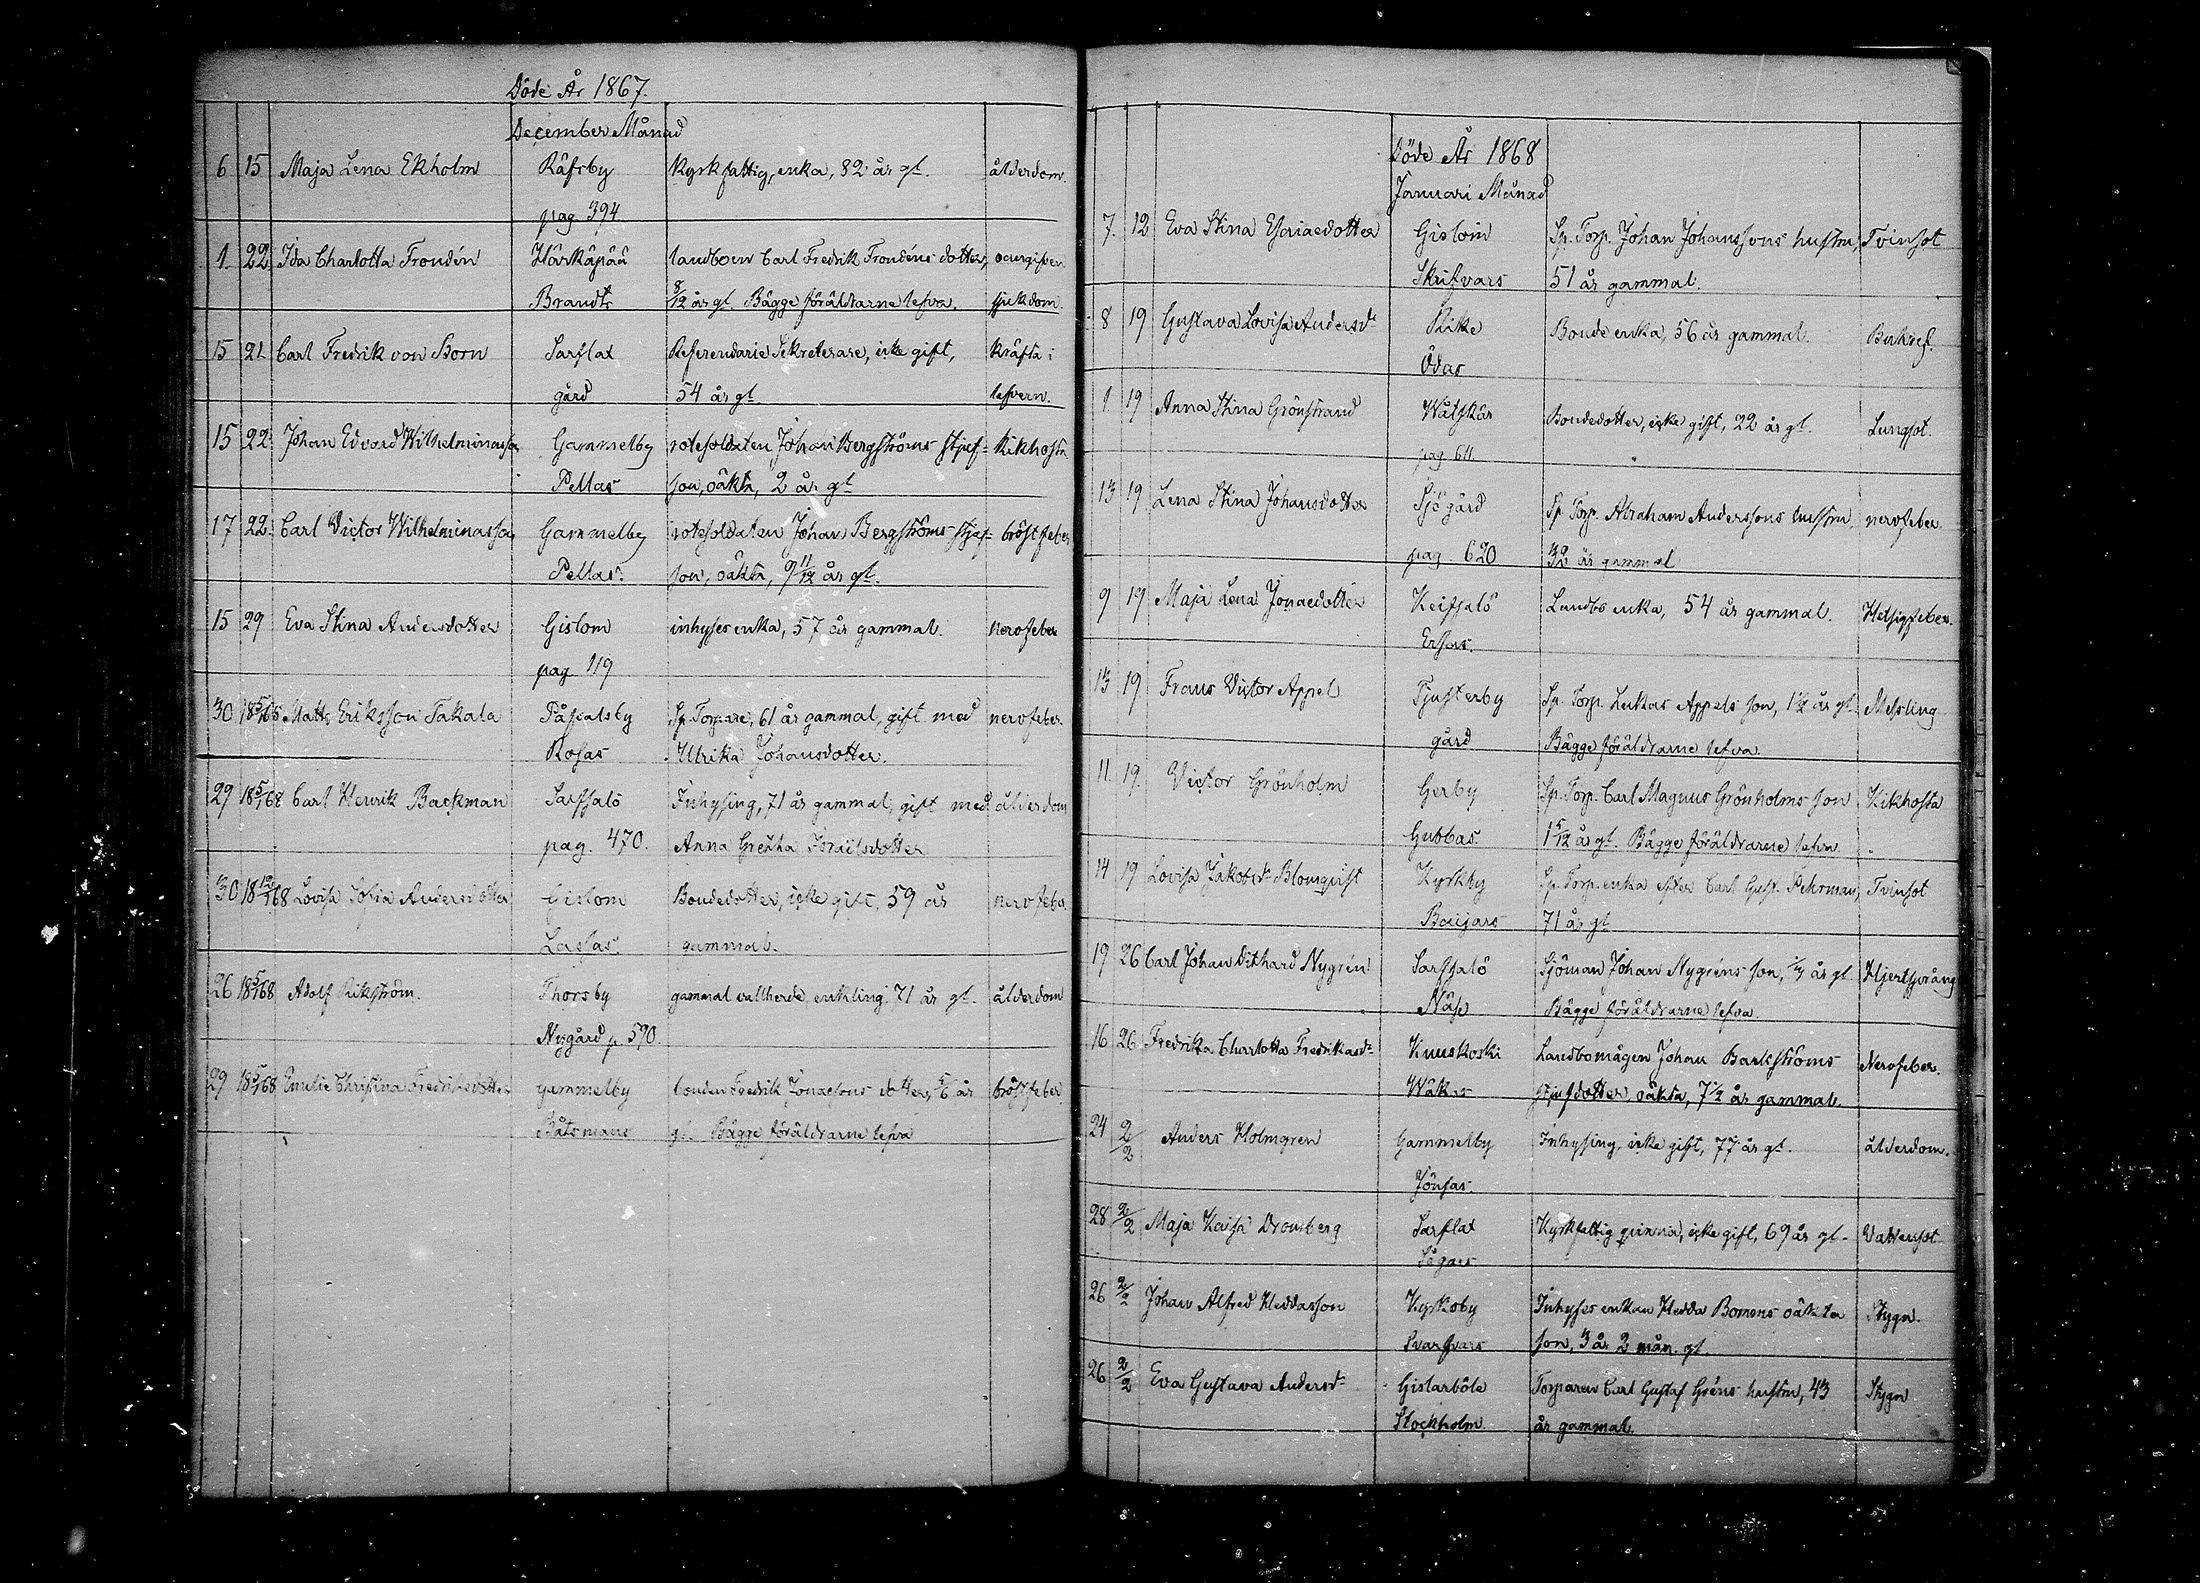 Döde År 1867.
December Månad
6 15 Maja Lena Ekholm Räfsby Kyrkfattig, enka, 82 år gl. ålderdom.
pag. 394
1. 22 Ida Charlotta Frondén Härkäpää landboen Carl Fredrik Frondéns dotter, oangifven
Brandts 8/12 år gl. Bägge föräldrarne lefva. sjukdom.
15 21 Carl Fredrik von Born Sarflax Referendarie Sekreterare, icke gift, Kräfta i
gård 54 år gl. lefvern.
15 22 Johan Edvard Wilhelminasson Gammelby rotesoldaten Johan Bergströms stjuf- Kikhosta
Pellas son, oäkta, 2 år gl
17 22 Carl Victor Wilhelminasson Gammelby rotesoldaten Johan Bergströms stjuf- bröstfeber
Pellas. son, oäkta, 9 11/12 år gl.
15 29 Eva Stina Andersdotter Gislom inhyses enka, 57 år gammal. nervfeber
pag 119
30 18 5/1 68 Matts Eriksson Takala Påfvalsby Sp. Torpare, 61 år gammal, gift med nervfeber.
Rosas Ulrika Johansdotter.
29 18 5/1 68 Carl Henrik Backman Sarfsalö Inhysing, 71 år gammal, gift med ålderdom
pag. 470. Anna Greta Israëlsdotter
30 18 12/1 68 Lovisa Sofia Andersdotter Gislom Bondedotter, icke gift, 59 år nervfeber.
Lassas. gammal.
26 18 5/1 68 Adolf Rikström. Thorsby gammal vallherde enkling 71 år gl. ålderdom
Nygård p. 590.
29 18 5/1 68 Emelie Christina Fredriksdotter Gammelby bonden Fredrik Jonassons dotter, 5/6 år bröstfeber
Båtsmans gl. Bägge föräldrarne lefva
Döde År 1868
Januari Månad
7. 12 Eva Stina Esaiaedotter Gislom Sp. Torp. Johan Johanssons hustru, Tvinsot
Skrifvars 51 år gammal.
8 19 Gustava Lovisa Andersdr Rike Bonde enka, 56 år gammal. Bukref.
Ödas
1. 19 Anna Stina Grönstrand Wåtskär Bondedotter, icke gift, 22 år gl. Lungsot.
pag 611
13 19 Lena Stina Johansdotter Sjögård Sp. Torp. Abraham Anderssons hustru, nervfeber.
pag 620 32 år gammal
9 19 Maja Lena Jonaedotter Keitsalö Landbo enka, 54 år gammal. Hetsigfeber.
Ersas.
13 19 Frans Victor Appel Tjusterby Sp. Torp. Lukas Appels son, 1 1/2 år gl. Messling
gård Bägge föräldrarne lefva.
11. 19. Victor Grönholm Gerby Sp. Torp. Carl Magnus Grönholms son Kikhosta
Gubbas 1 5/12 år gl. Bägge föräldrarne lefva
14 19 Lovisa Jakobsdr Blomqvist Kyrkby Sp. Torp. enka efter Carl Gust. Rehrman, Tvinsot
Baijars 71 år gl
19 26 Carl Johan Dithard Nygrén Sarfsalö Sjöman Johan Nygréns son, 1/4 år gl Hjertsprång
Näse Bägge föräldrarne lefva.
16 26 Fredrika Charlotta Fredrikasdr Kuuskoski Landbomågen Johan Barkströms Nervfeber.
Wäkas stjufdotter, oäkta, 7 1/2 år gammal.
24 2/2 Anders Holmgren Gammelby Inhysing, icke gift, 77 år gl. ålderdom.
Jönsas.
28 2/2 Maja Kaisa Dromberg Sarflax Kyrkfattig qvinna, icke gift, 69 år gl. Vattensot
Segars
26 2/2 Johan Alfred Heddasson Kyrkoby Inhyses enkan Hedda Bomans oäkta Stygn.
Svarfvars son, 3 år 2 mån. gl.
26 2/2 Eva Gustava Andersdr Gislarböle Torparen Carl Gustaf Gréns hustru, 43 Stygn
Stockholm år gammal.